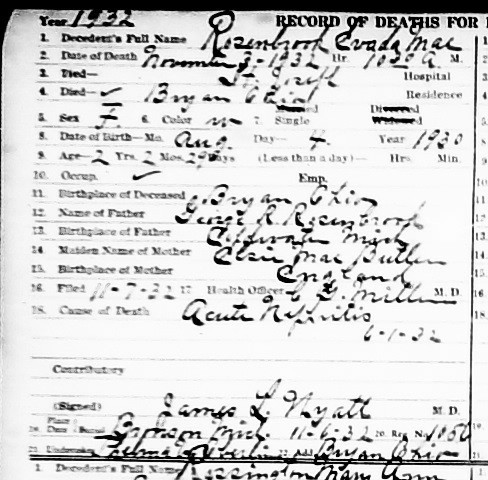 Year 1932 RECORD OF DEATHS FOR
1. Decedent's Full Name Rosenbrook Evada Mae
2. Date of Death November 3-1932 Hr. 1030 A. M.
3. Died— St. Joseph Hospital
4. Died— ✓ Bryan Ohio Residence
Married Divorced
5. Sex F. 6. Color w 7. Single Widowed
8. Date of Birth—Mo. Aug. Day— 4. Year 1930
9. Age— 2 Yrs. 2 Mos. 29 Days (Less than a day)— Hrs. Min.
10. Occup. ✓ Emp.
11. Birthplace of Deceased Bryan Ohio
12. Name of Father George R. Rosenbrook
13. Birthplace of Father Coldwater Mich
14. Maiden Name of Mother Elsie Mae Butler
15. Birthplace of Mother England
16. Filed 11-7-32 17. Health Officer G. Miller M. D.
18. Cause of Death Acute Nephritis
6-1-32
Contributory
(Signed) James L. Wyatt M. D.
Place
19. Date Burial Bronson Mich. 11-6-32 20. Reg. No. 1050
21. Undertaker Add Bryan Ohio
1. Decedent's Full Name Mary Ann